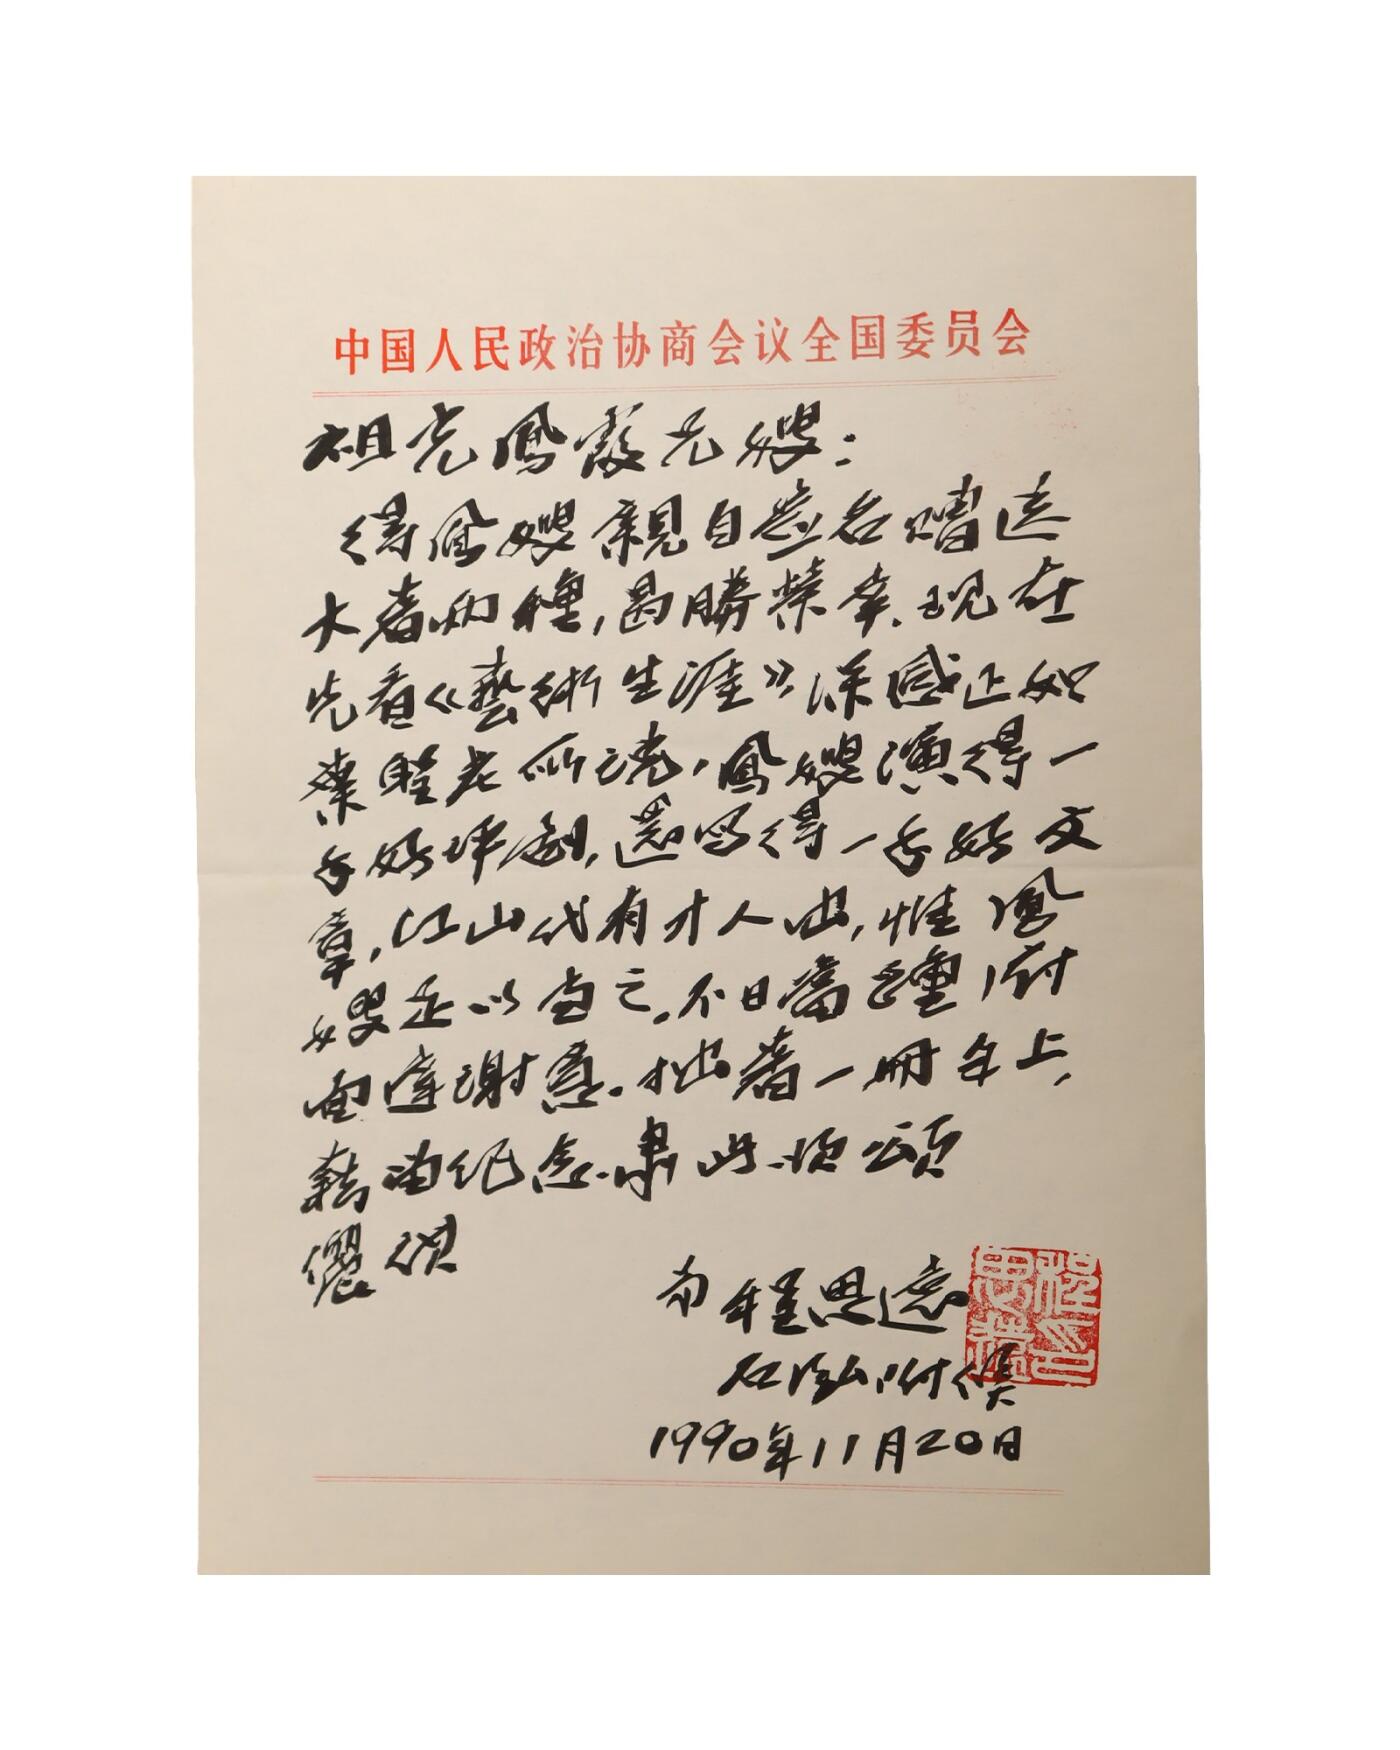 中国人民政治协商会议全国委员会
祖光鳳霞兄嫂：
得鳳嫂親自簽名贈送
大著兩種，曷勝榮幸．现在
先看《藝術生涯》深感正如
葉聖老所说，鳳嫂演得一
手好评劇，還写得一手好文
章，江山代有才人出，惟鳳
嫂足以当之。不日當趋府
面達謝意．拙著一冊奉上，
藉留纪念．肃此．顺頌
儷祺
弟程思遠
石泓附候
程思遠印
1990年11月20日